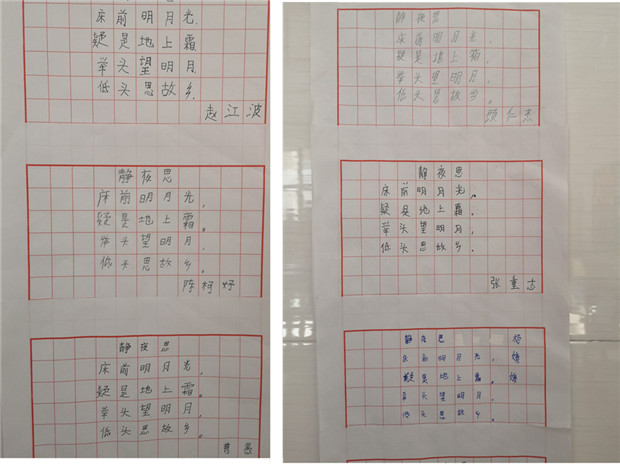 床前明月光,
疑是地上霜
举头望明月,
低头思故乡。
赵江波
静夜思
床前明月光,
疑是地上霜。
举头望明月,
低头思故乡。
陈柯妤
静夜思
床前明月光,
疑是地上霜。
举头望明月,
低头思故乡。
静夜思
床前明月光,
疑是地上霜,
举头望明月,
低头思故乡。
顾仁杰
静夜思
床前明月光。
疑是地上霜,
举头望明月,
低头思故乡。
张童古
静夜思 杨
床前明月光,
疑是地上霜。
举头望明月,
低头思故乡。